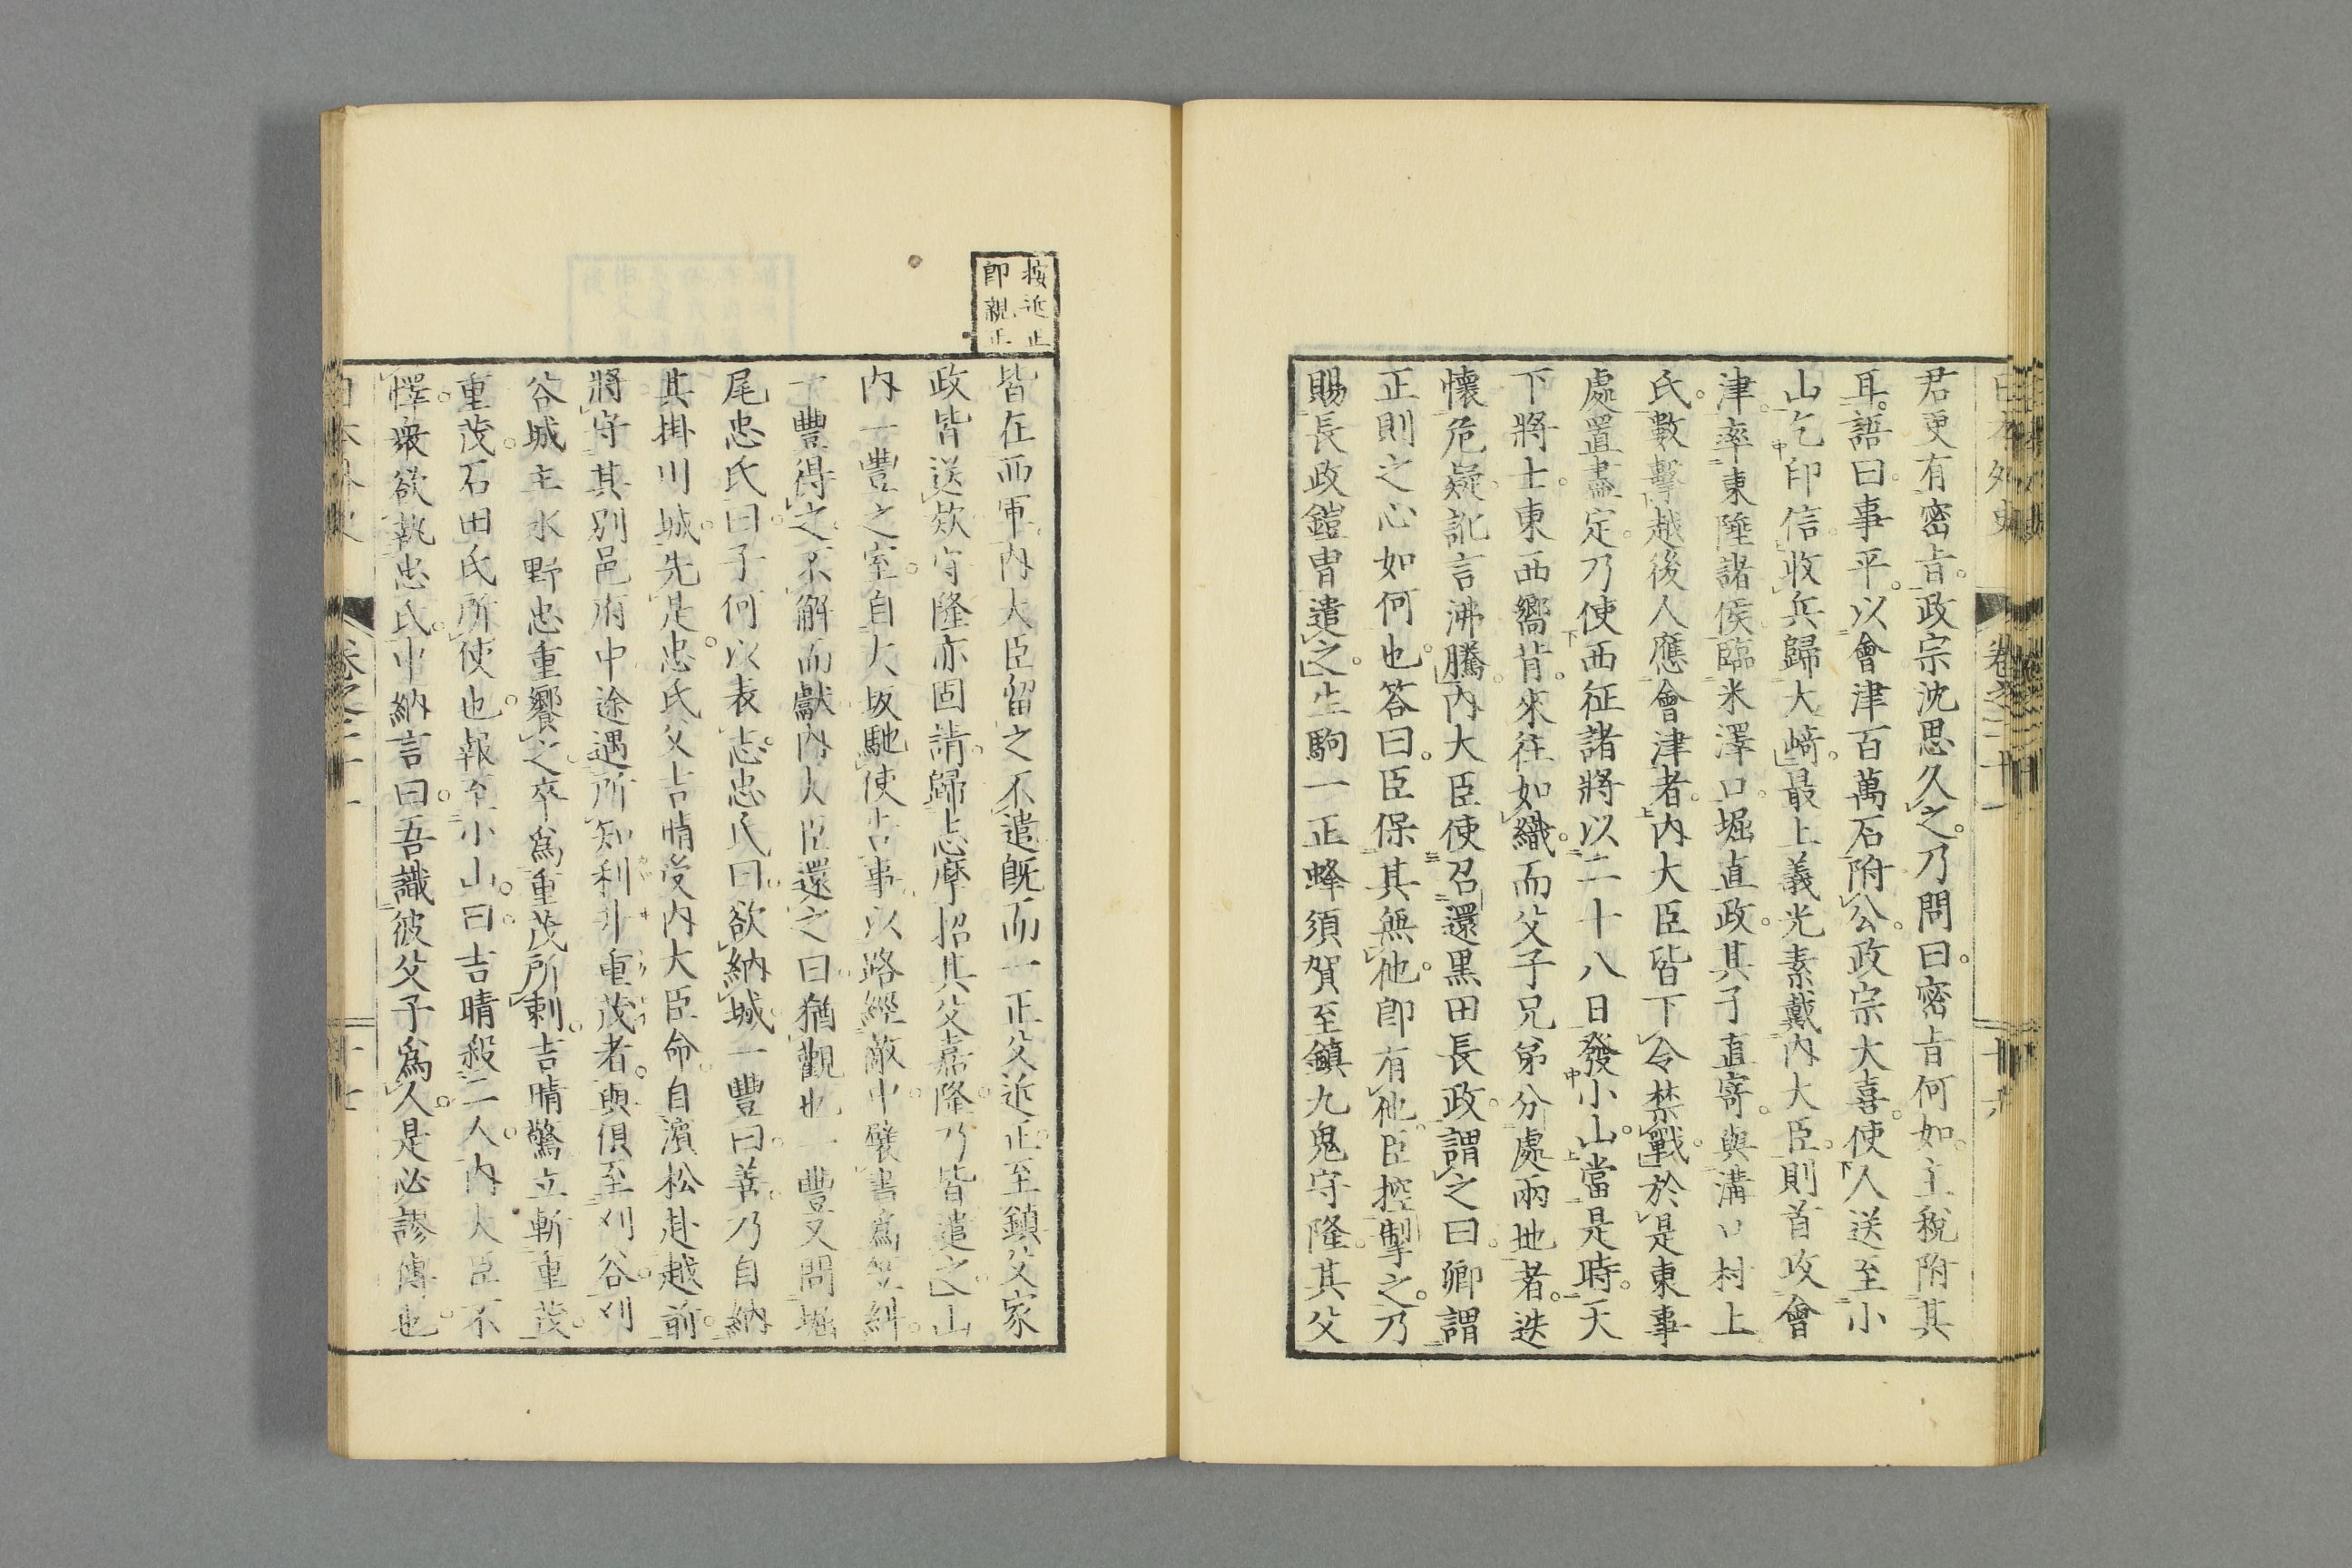 君更有密旨。政宗沈思久之。乃問曰。密旨何如。主税附其
耳語曰。事平。以會津百萬石附公。政宗大喜。使人送至小
山乞印信。收兵歸大崎。最上義光素戴内大臣。則首攻會
津。率東陲諸侯臨米澤口。堀直政。其子直寄。與溝口村上
氏。數擊越後人應會津者。内大臣皆下令禁戰。於是東事
處置盡定。乃使西征諸將以二十八日發小山。當是時。天
下將士。東西嚮背。來往如織。而父子兄弟分處兩地者。迭
懷危疑。訛言沸騰。内大臣使召還黒田長政。謂之曰。卿謂
正則之心如何也。答曰。臣保其無他。卽有他。臣控掣之。乃
賜長政鎧冑遣之。生駒一正蜂須賀至鎮九鬼守隆。其父
按近正
卽親正
皆在西軍。内大臣留之不遣。既而一正父近正。至鎮父家
政。皆送欵。守隆亦固請。歸志摩招其父嘉隆。乃皆遣之。山
内一豐之室。自大坂馳使告事。以路經敵中。襞書爲笠糾。
一豐得之。不解而獻内大臣。還之曰。猶觀也。一豐又問堀
尾忠氏曰。子何以表志。忠氏曰。欲納城。一豐曰。善。乃自納
其掛川城。先是。忠氏父吉晴受内大臣命。自濱松赴越前。
將守其別邑府中。途遇所知利井重茂者。與俱至刈谷。刈
谷城主水野忠重饗之。卒爲重茂所刺。吉晴驚立斬重茂。
重茂。石田氏所使也。報至小山。曰。吉晴殺二人。内大臣不
懌。衆欲執忠氏。中納言曰。吾識彼父子爲人。是必謬傳也。
卷之二十一